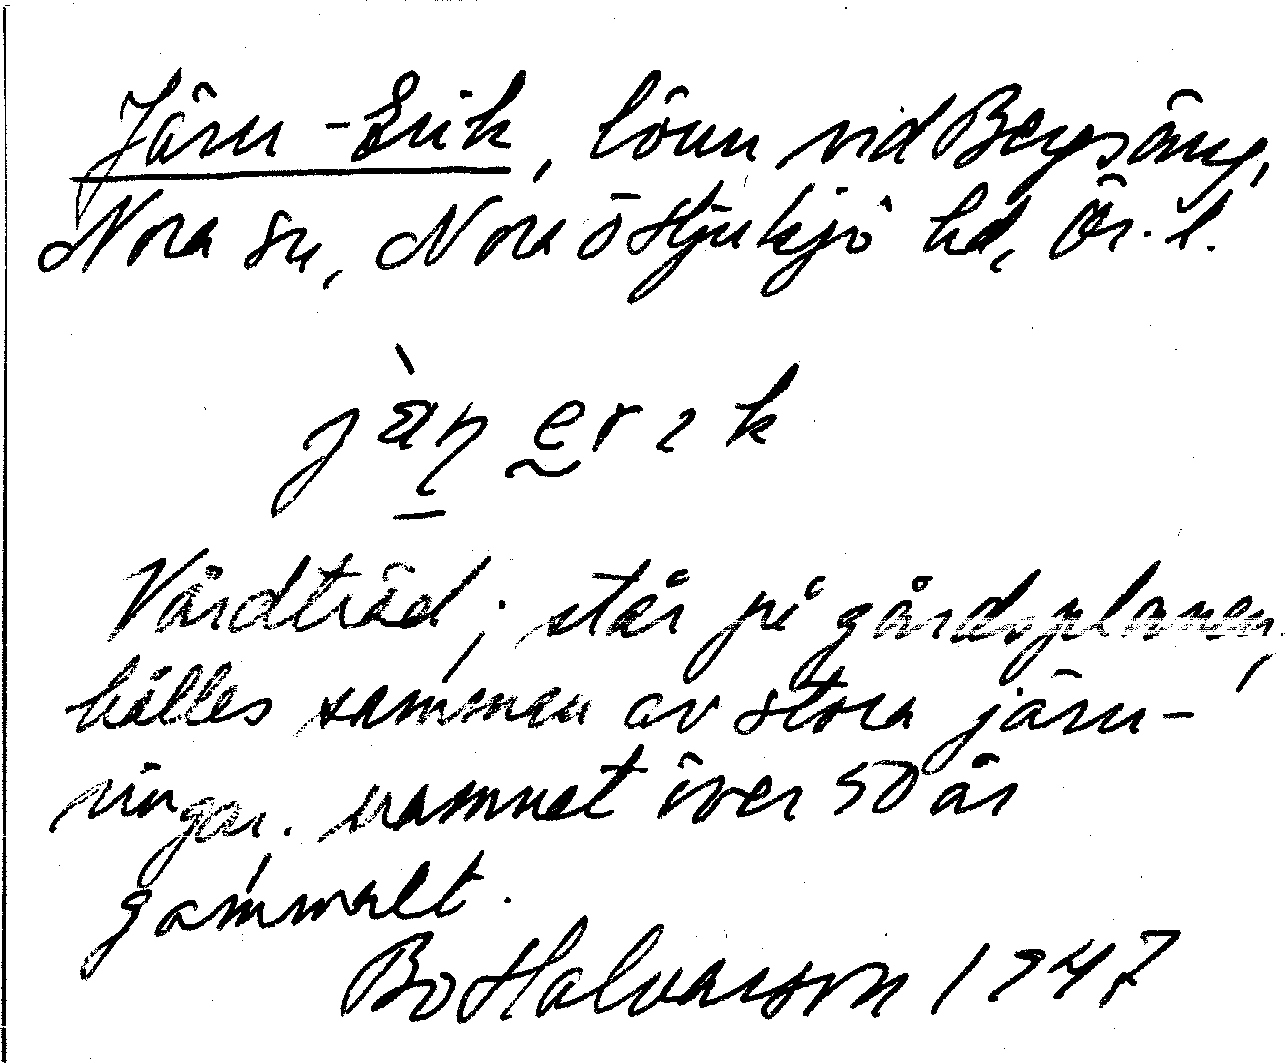 Järn-Erik, lönn vid Bergsäng,
Nora sn, Nora o Hjulsjö hd, Ör. l.
Vårdträd, står på gårdsplanen,
hålles samman av stora järn-
ringar. namnet över 50 år
gammalt.
Bo Halvarsson 1947